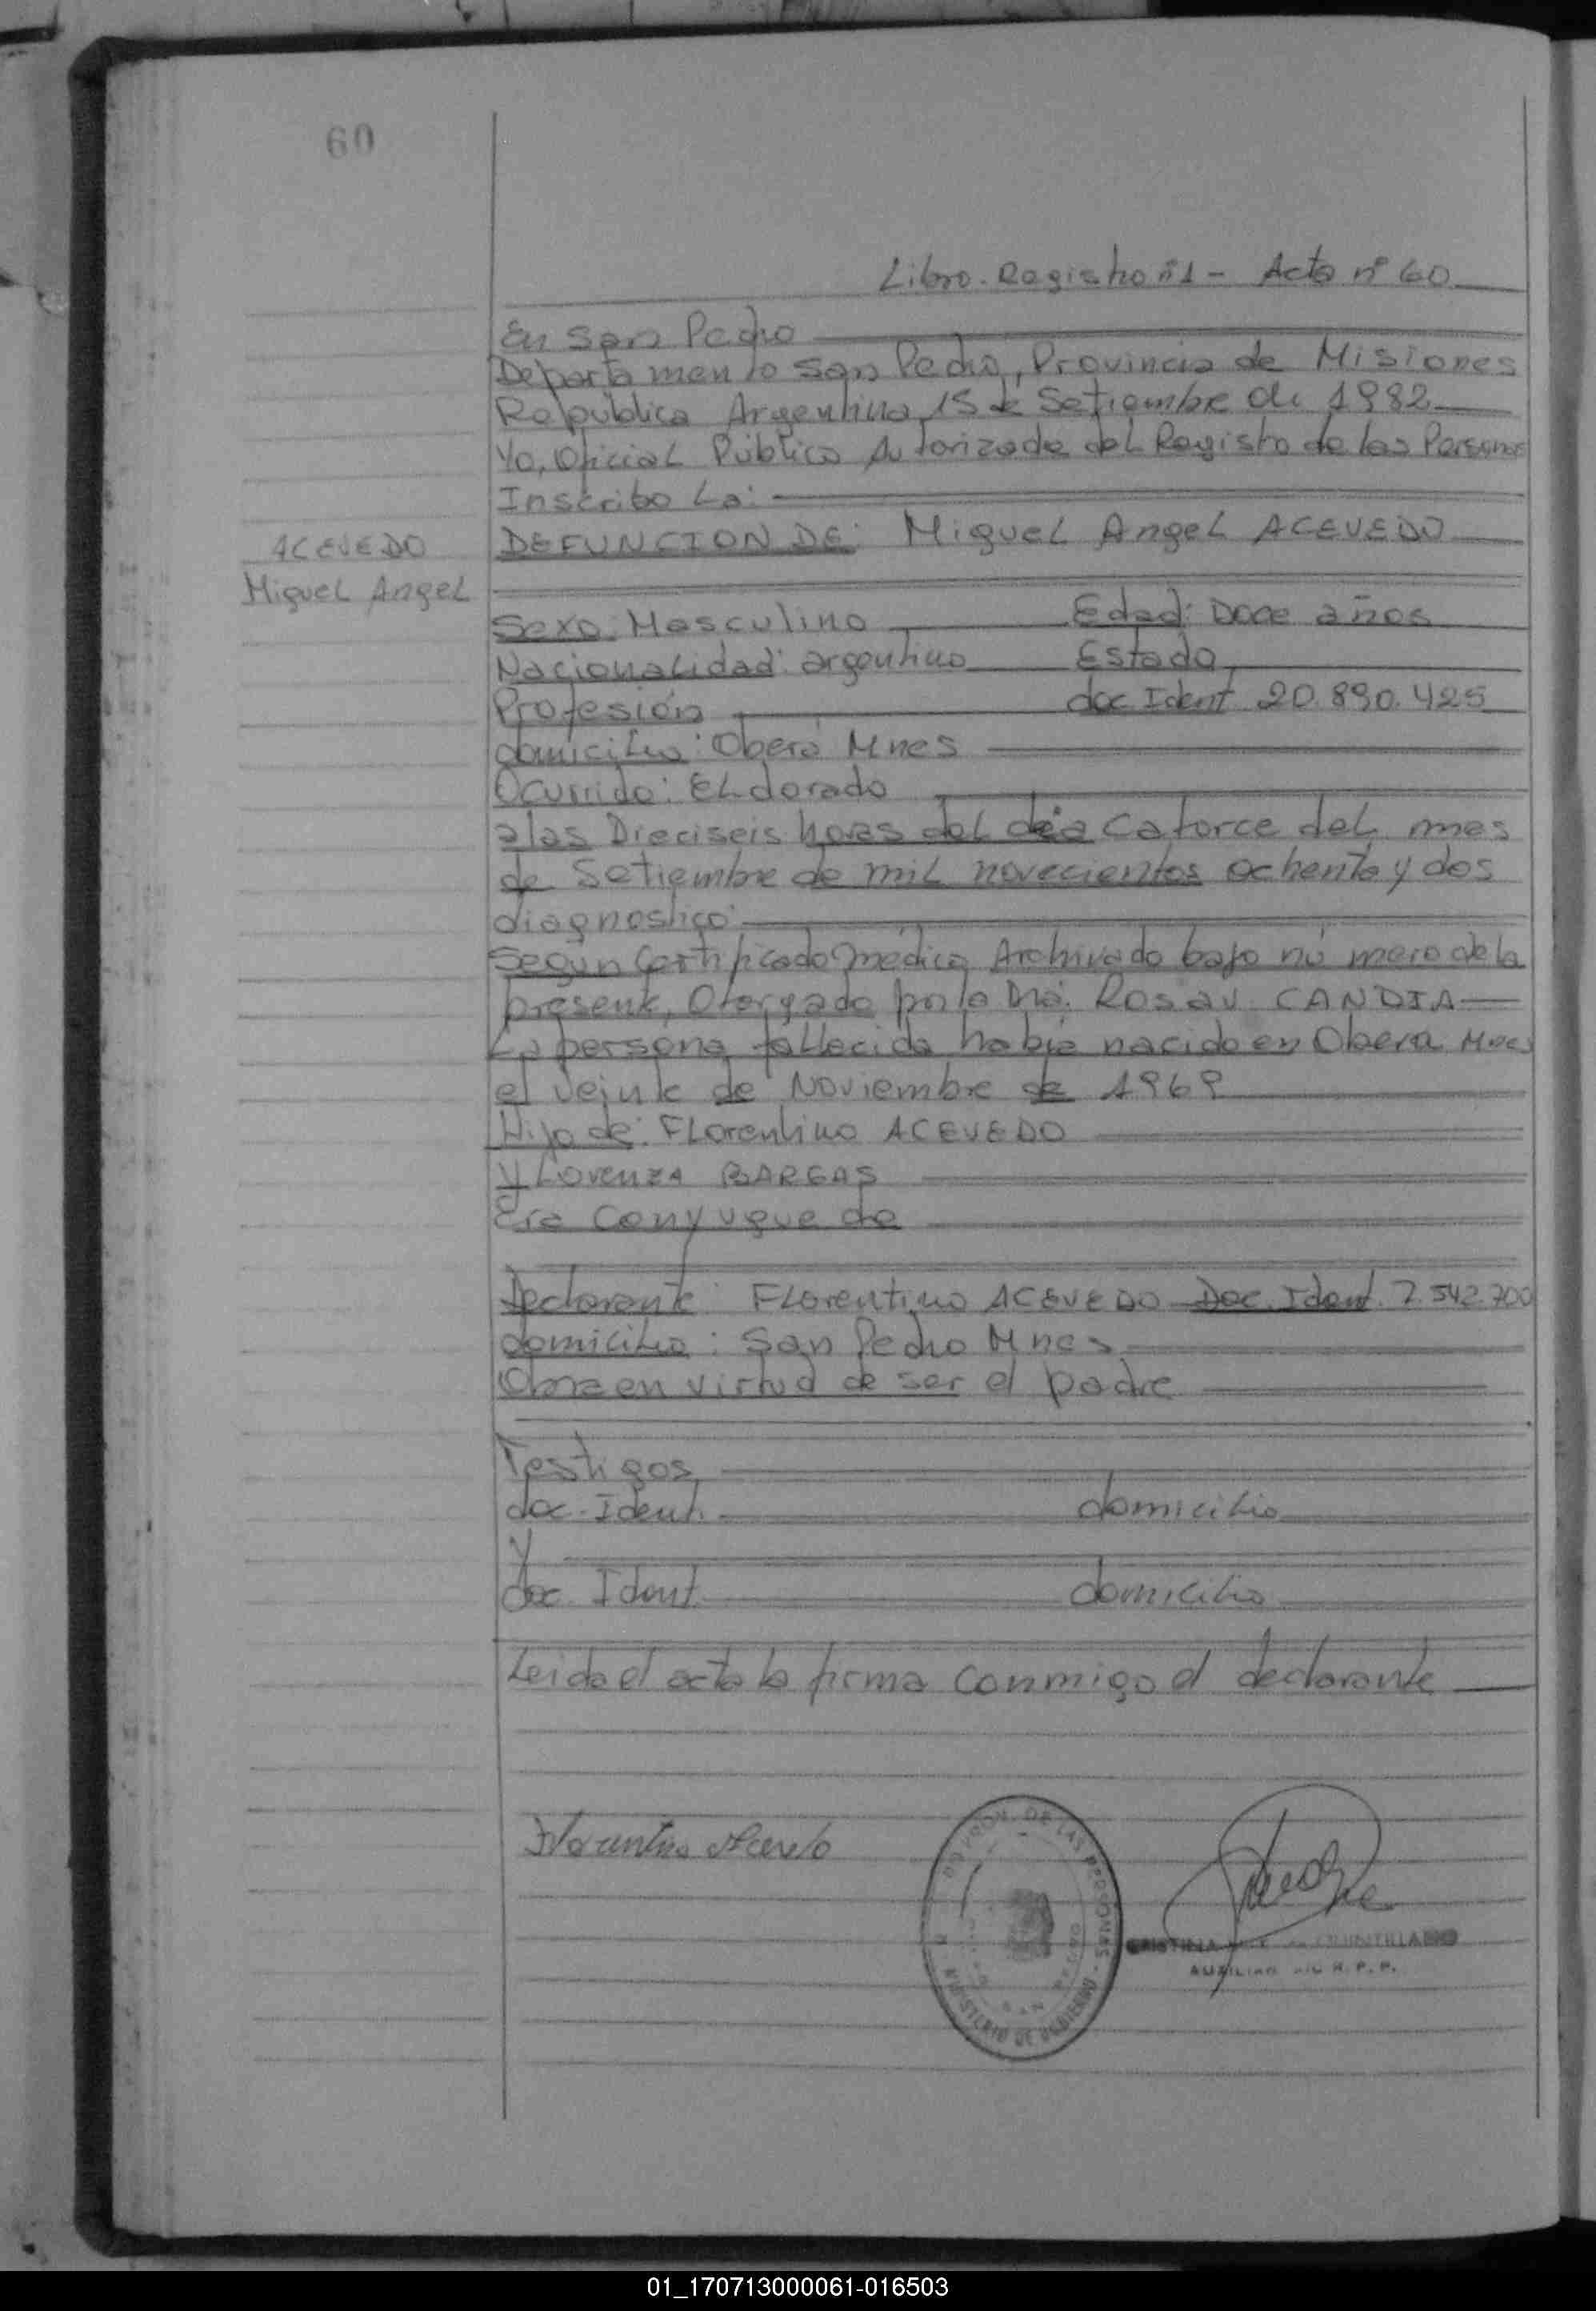 60
Libro. Registro nº1 - Acta nº 60
En San Pedro
Departamento San Pedro, Provincia de Misiones
Republica Argentina, 15 de Setiembre de 1982
Yo, Oficial Público Autorizado del Registro de las Personas
Inscribo La:
ACEVEDO
Miguel Angel
DEFUNCION DE: Miguel Angel ACEVEDO
Sexo: Masculino Edad: Doce años
Nacionalidad: argentino Estado
Profesión doc Ident 20.890.425
domicilio: Oberá Mnes
Ocurrido: ELdorado
a las Dieciseis horas del dia Catorce del mes
de Setiembre de mil novecientos ochenta y dos
diagnostico:
Segun Certificado médico Archivado bajo número de la
presente, Otorgado por la Dra. Rosa V. CANDIA
La persona fallecida habia nacido en Obera Mnes
el veinte de Noviembre de 1969
Hijo de: Florentino ACEVEDO
y Lorenza BARGAS
Era Conyugue de
Declarante: Florentino ACEVEDO Doc. Ident. 7.542.700
domicilio: San Pedro Mnes
Obra en virtud de ser el padre
Testigos
doc. Ident. domicilio
y
doc. Ident. domicilio
Leida el acta la firma conmigo el declarante
Florentino Acevedo
DE LAS PERSONAS - MINISTERIO DE GOBIERNO
SAN PEDRO
CRISTINA
AUXILIAR R. P. P.
01_170713000061-016503